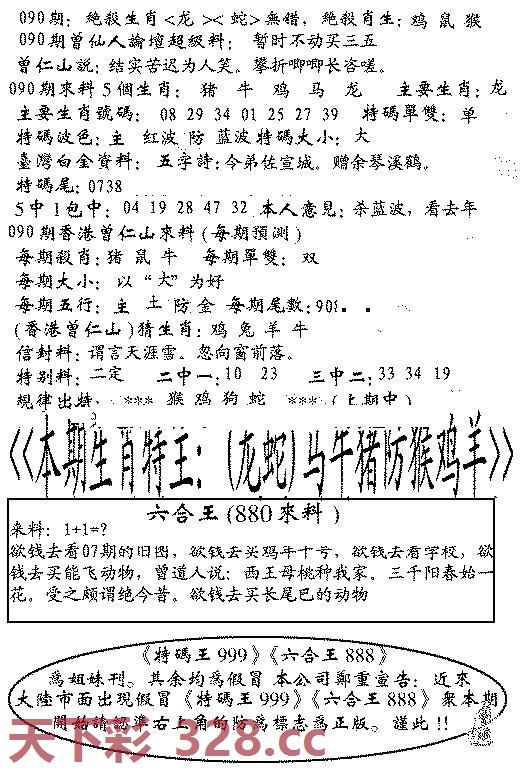 090期: 绝殺生肖<龙><蛇>無错, 绝殺肖生: 鸡 鼠 猴
090期曾仙人論壇超級料: 暂时不动买三五
曾仁山説: 结实苦迟为人笑。攀折唧唧长咨嗟。
090期來料5個生肖: 猪 牛 鸡 马 龙 主要生肖: 龙
主要生肖號碼: 08 29 34 01 25 27 39 特碼單雙: 单
特碼波色: 主 红波 防 蓝波 特碼大小: 大
臺灣白金資料: 五字詩: 令弟佐宣城。赠余琴溪鹤。
特碼尾: 0738
5中1包中: 04 19 28 47 32 本人意見: 杀蓝波, 看去年
090期香港曾仁山來料(每期預測)
每期殺肖: 猪 鼠 牛 每期單雙: 双
每期大小: 以“大”为好
每期五行: 主 土 防 金 每期尾數: 908
(香港曾仁山)猜生肖: 鸡 兔 羊 牛
信封料: 谓言天涯雪。忽向窗前落。
特别料: 二定 二中一: 10 23 三中二: 33 34 19
規律出特: *** 猴 鸡 狗 蛇 *** (上期中)
《本期生肖特王: (龙蛇)马牛猪防猴鸡羊》
六合王(880來料)
来料: 1+1=?
欲钱去看07期的旧图, 欲钱去买鸡年十号, 欲钱去看学校, 欲
钱去买能飞动物, 曾道人说: 西王母桃种我家。三千阳春始一
花。受之颇谓绝今昔。欲钱去买长尾巴的动物
《特碼王999》《六合王888》
為姐妹刊。其余均為假冒 本公司鄭重宣告: 近來
大陸市面出現假冒《特碼王999》《六合王888》衆本期
開始請認準右上角的防為標志為正版。謹此!!
天下彩 328.cc